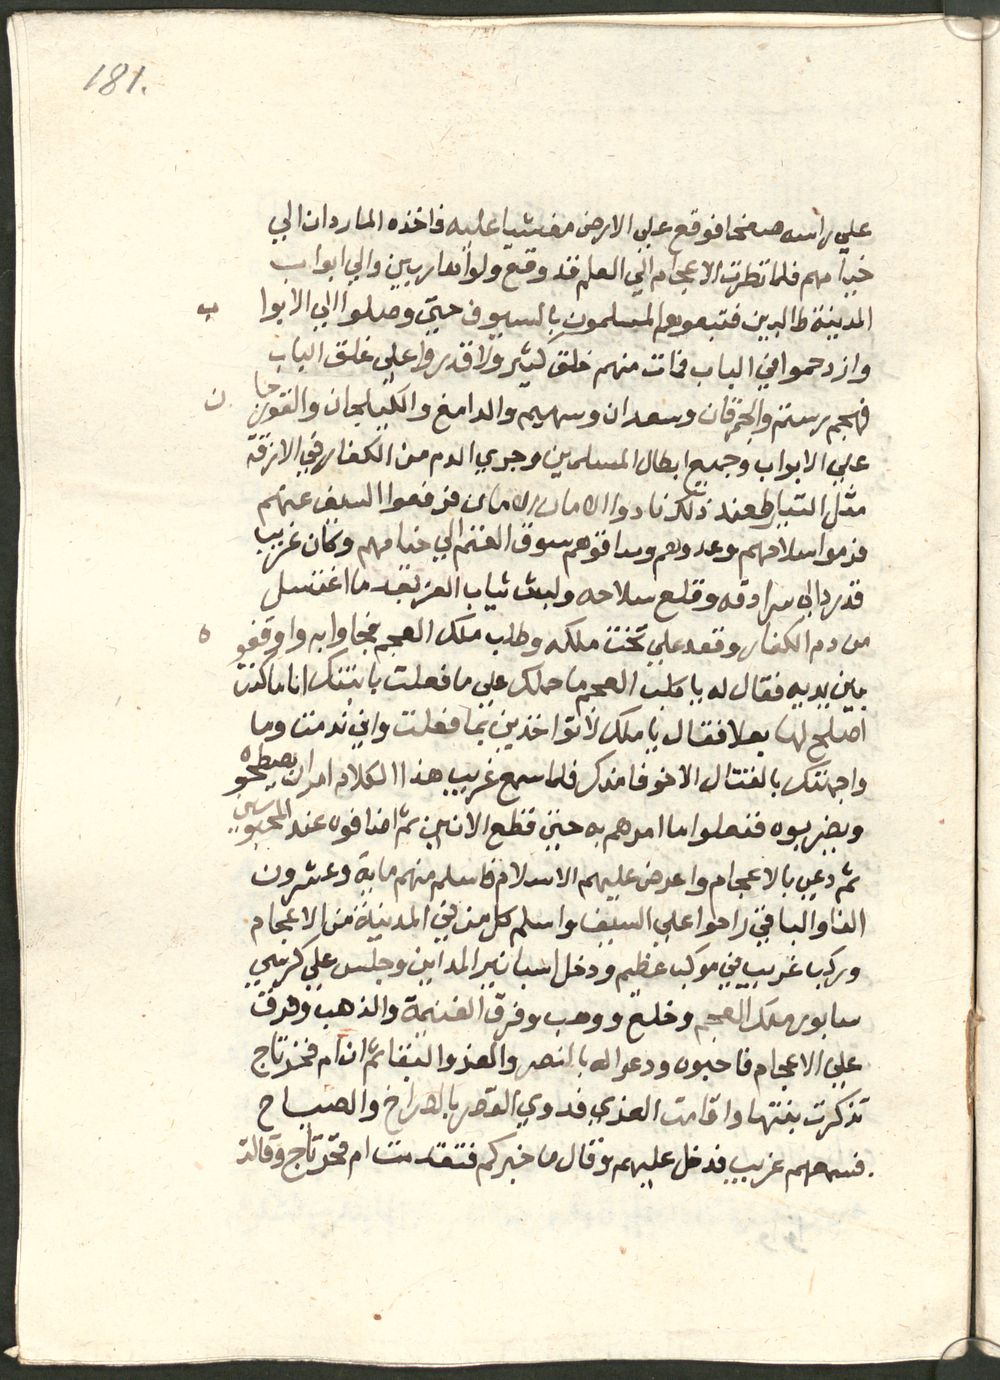 181.
علي راسه صفحا فوقع علي الارض مغشيا عليه فاخذه الماردان الي
خيامهم فلما نظرت الاعجام الي العلم قد وقع ولوا هاربين والي ابواب
المدينة طالبين فتبعوهم المسلمون بالسيوف حتي وصلوا الي الابوا ب
وازدحموا في الباب فمات منهم خلق كثير ولا قدروا علي غلق الباب
فهجم رستم والجمرقان وسعدان وسهيم والدامغ والكيلجان والقورجا ن
علي الابواب وجميع ابطال المسلمين وجري الدم من الكفار في الازقة
مثل التيار فعند ذلك نادوا الامان الامان فرفعوا السيف عنهم
فرموا سلاحهم وعددهم وساقوهم سوق الغنم الي خيامهم وكان غريب
قد رد الي سرادقه وقلع سلاحه ولبث ثياب العز بعد ما اغتسل
من دم الكفار وقعد علي تخت ملكه وطلب ملك العجم فجاوا به واوقفو ه
بين يديه فقال له يا كلب العجم ما حملك علي ما فعلت بابنتك انا ما كنت
اصلح لها بعلا فقال يا ملك لا تواخذين بما فعلت واني ندمت وما
واجهتك بالقتال الا خوفا منك فلما سمع غريب هذا الكلام امر ان يصطحوه
ويضربوه ففعلوا ما امرهم به حتي قطع الانين ثم اضافوه عند المحبوسين
ثم دعي بالاعجام واعرض عليهم الاسلام فاسلم منهم ماية وعشرون
الفا والباقي راحوا علي السيف واسلم كل من في المدينة من الاعجام
وركب غريب في موكب عظيم ودخل اسبانير المداين وجلس علي كرسي
سابور ملك العجم وخلع ووهب وفرق الغنيمة والذهب وفرق
علي الاعجام فاحبوه ودعوا له بالنصر والعز والبقا ثم ان ام فخر تاج
تذكرت بنتها واقامت العزي فدوي القصر بالصراخ والصياح
فسمعهم غريب فدخل عليهم وقال ما خبركم فتقدمت ام فخر تاج وقالت